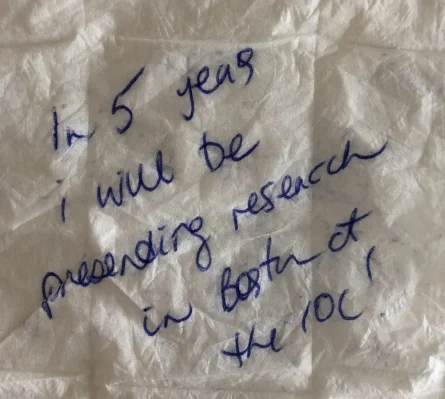 In 5 years
i will be
presending research
in Boston at
the IOC!